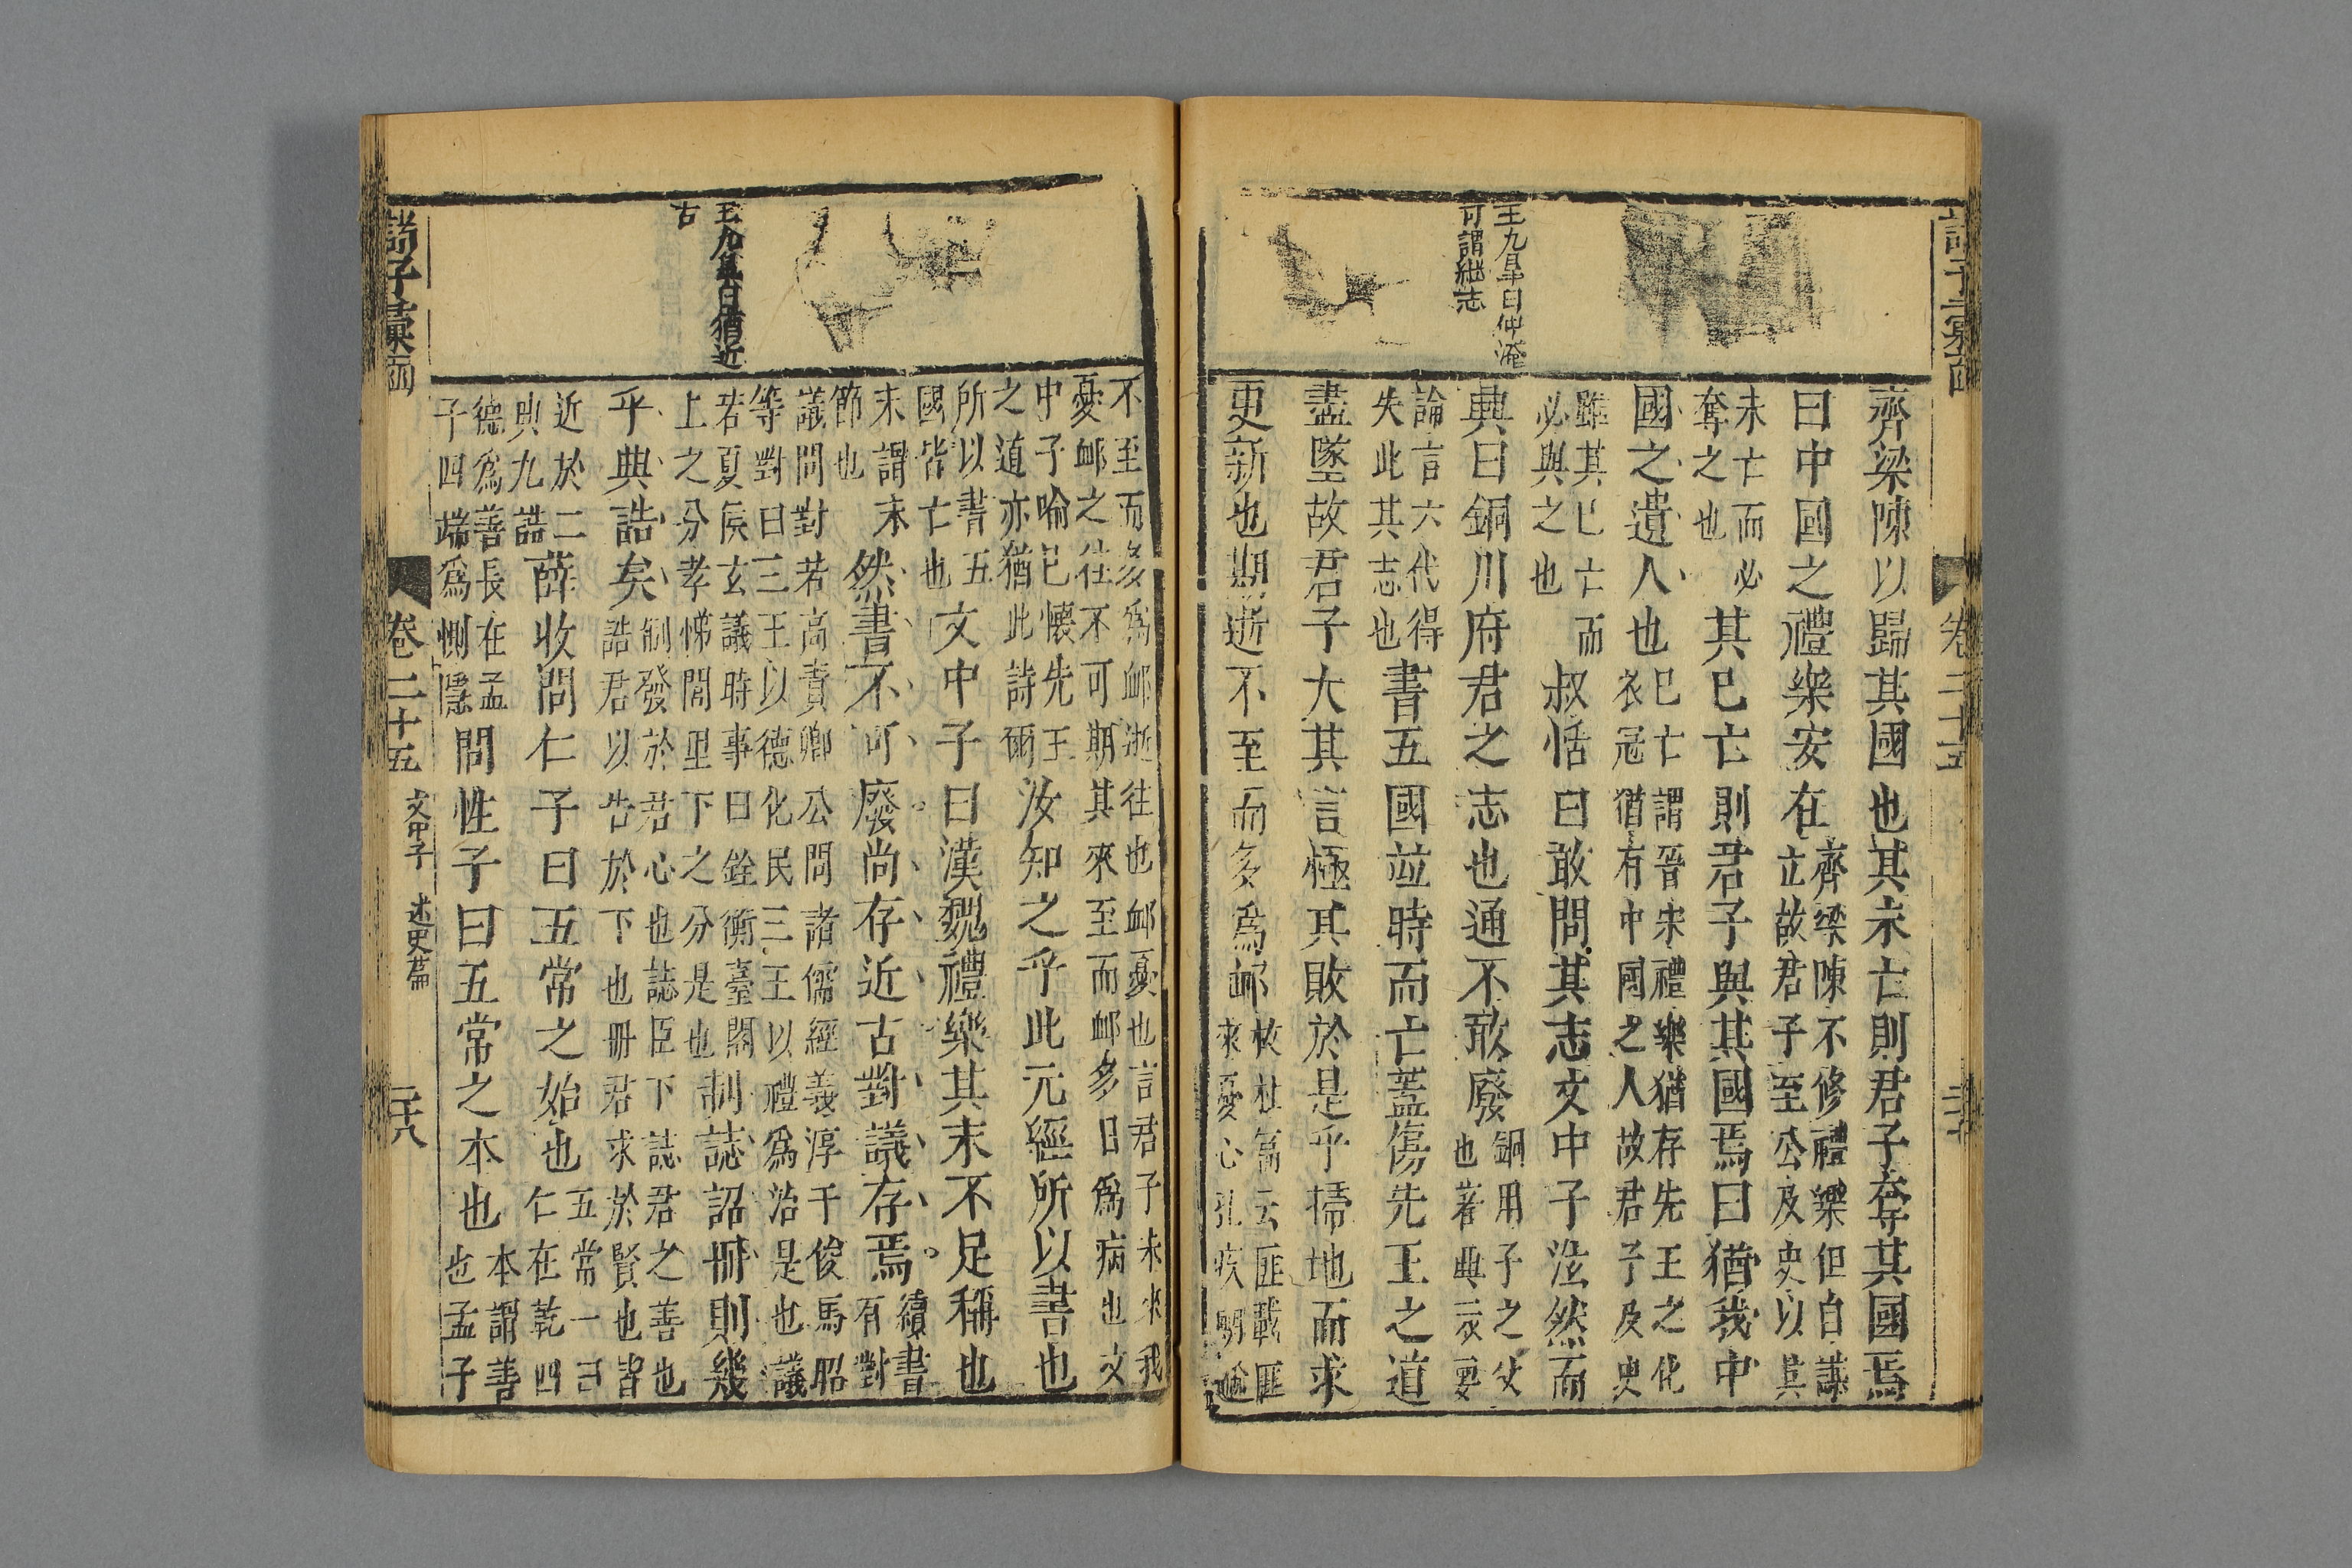 王九臯曰仲淹
可謂繼志
齊梁陳以歸其國也其未亡則君子奪其國焉
曰中國之禮樂安在齊梁陳不修禮樂但自謀立故君子至公及史以其
未亡而必奪之也其已亡則君子與其國焉曰猶我中
國之遺人也已亡謂晉宋禮樂猶存先王之化衣冠猶有中國之人故君子及史
雖其已亡而必與之也叔恬曰敢問其志文中子泫然而
興曰銅川府君之志也通不敢廢銅川子之父也著興衰要
論言六代得失此其志也書五國並時而亡蓋傷先王之道
盡墜故君子大其言極其敗於是乎掃地而求
更新也期逝不至而多爲䘏故杕杜篇云匪載匪來憂心孔疚期逝
不至而多爲䘏逝往也䘏憂也言君子未來我憂䘏之往不可期其來至而䘏多日爲病也文
中子喻已懷先王之道亦猶此詩爾汝知之乎此元經所以書也
所以書五國皆亡也文中子曰漢魏禮樂其末不足稱也
末謂末節也然書不可廢尚存近古對議存焉續書有對
議問對若高貴卿公問諸儒經義淳于俊馬昭等對曰三王以德化民三王以禮爲治是也議
若夏侯玄議時事曰銓衡臺閣上之分孝悌閭里下之分是也制誌詔册則幾
乎典誥矣制發於君心也誌臣下誌君之善也誥君以告於下也册君求於賢也皆
近於二典九誥薛收問仁子曰五常之始也五常一曰仁在乾四
德爲善長在孟子四端爲惻隱問性子曰五常之本也本謂善也孟子
王九臯曰猶近
古
諸子彙函
卷二十五
文中子
述史篇
二十八